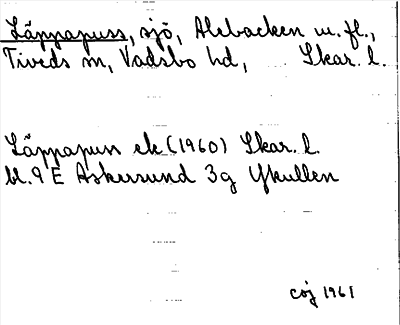 Läppapuss, sjö, Alebacken m. fl.,
Tiveds sn, Vadsbo hd, Skar. l.
Läppapuss ek (1960) Skar. l.
bl. 9 E Askersund 3g Ykullen
coj 1961